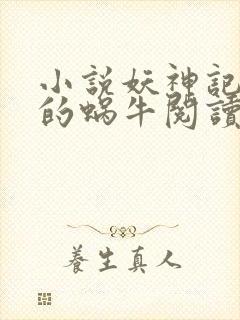 小說妖神記
的蝸牛閱讀
養生真人